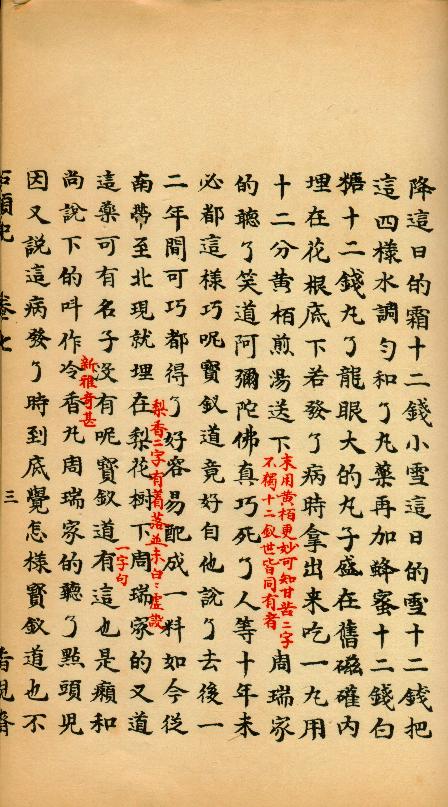 降這日的霜十二錢小雪這日的雪十二錢把
這四樣水調勻和了丸藥再加蜂蜜十二錢白
糖十二錢丸了龍眼大的丸子盛在舊磁礶內
埋在花根底下若發了病時拿出来吃一丸用
十二分黄栢煎湯送下
末用黄栢更妙可知甘苦二字
不獨十二釵世皆同有者
周瑞家
的聽了笑道阿彌陀佛真巧死了人等十年未
必都這樣巧呢寳釵道竟好自他說了去後一
二年間可巧都得了好容易配成一料如今從
南帶至北現就埋在梨花樹下周瑞家的又道
梨香二字有着落並未白〻虛設
這藥可有名子沒有呢寳釵道有這也是癩和
一字句
尚說下的呌作冷香丸周瑞家的聽了點頭兒
新雅奇甚
因又說這病發了時到底覺怎樣寳釵道也不
石頭記 卷七 三